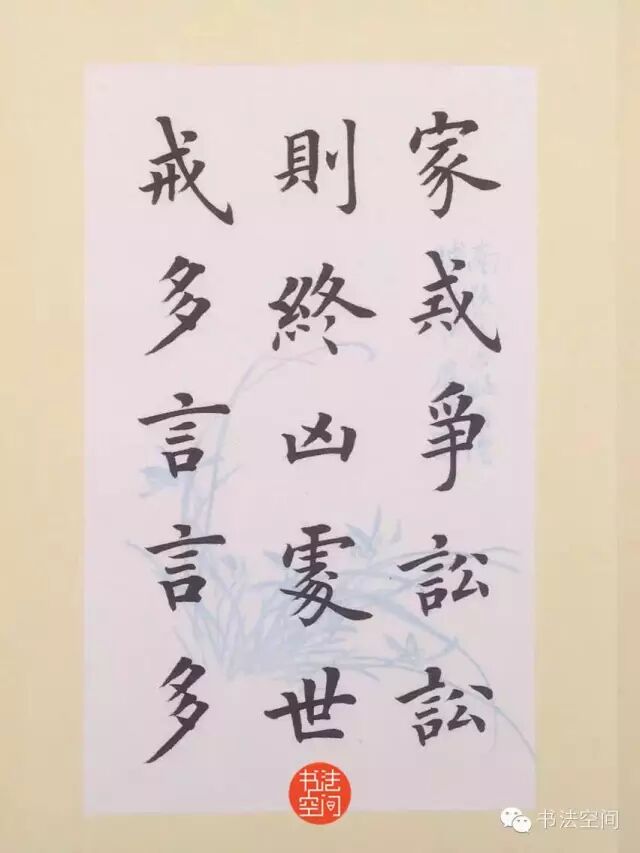 家戒爭訟訟
則終凶處世
戒多言言多
书法
空间
书法空间